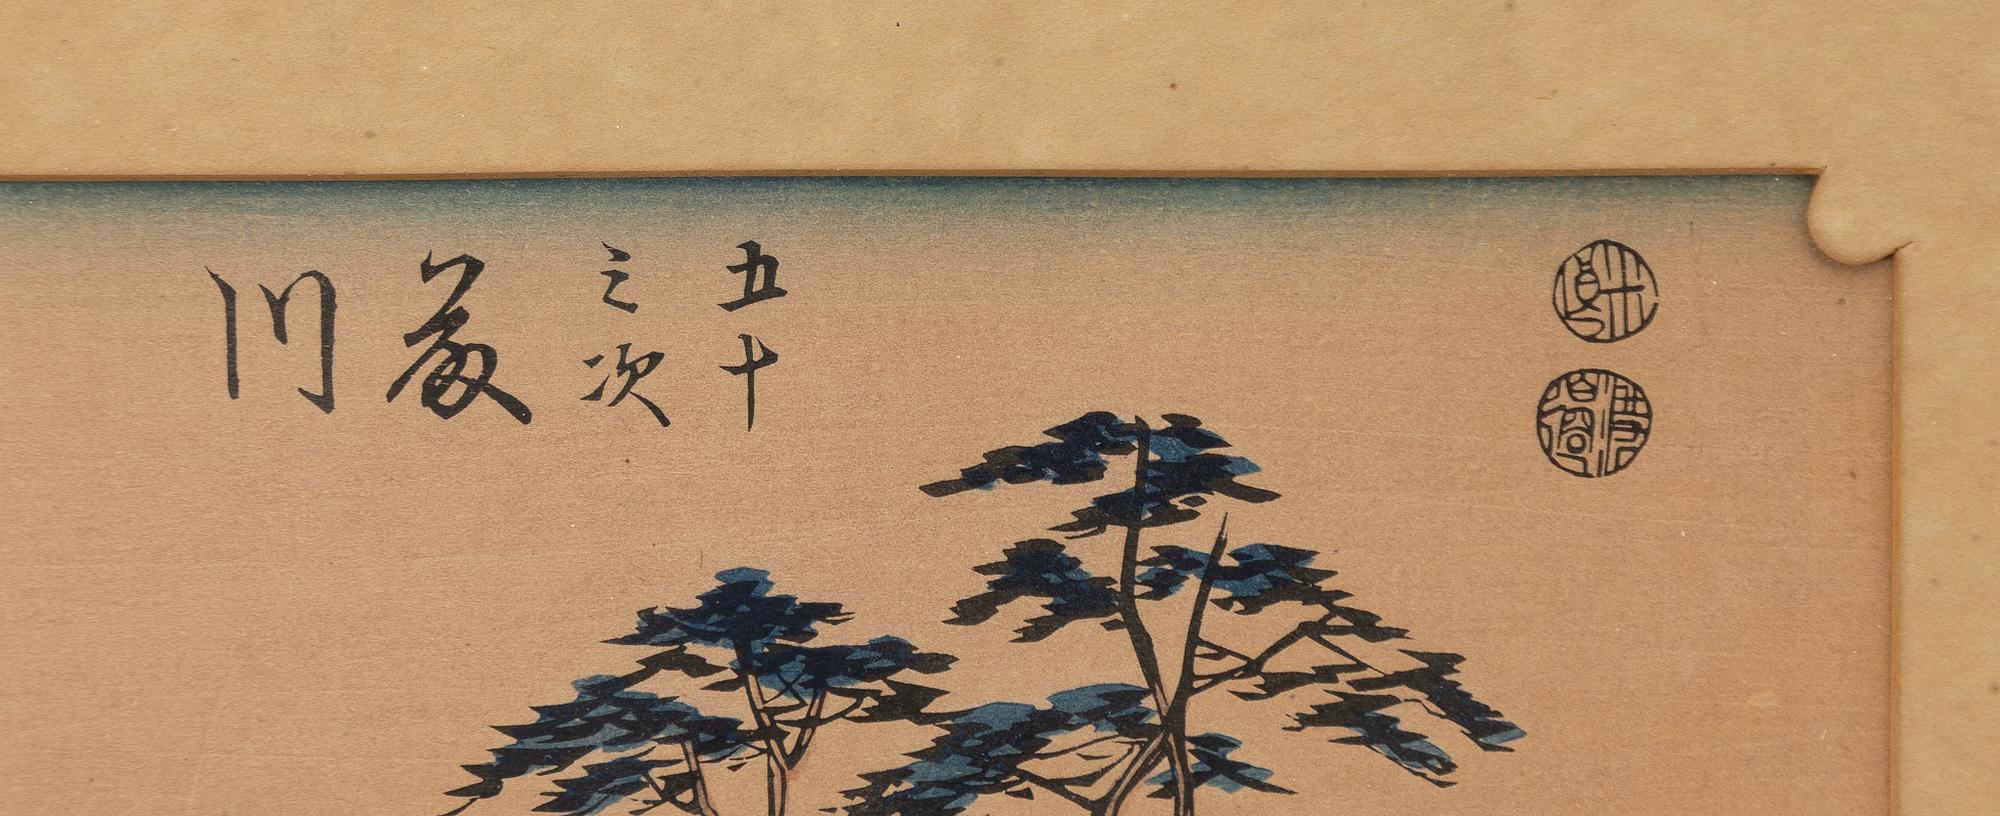 五十
三次
藤川